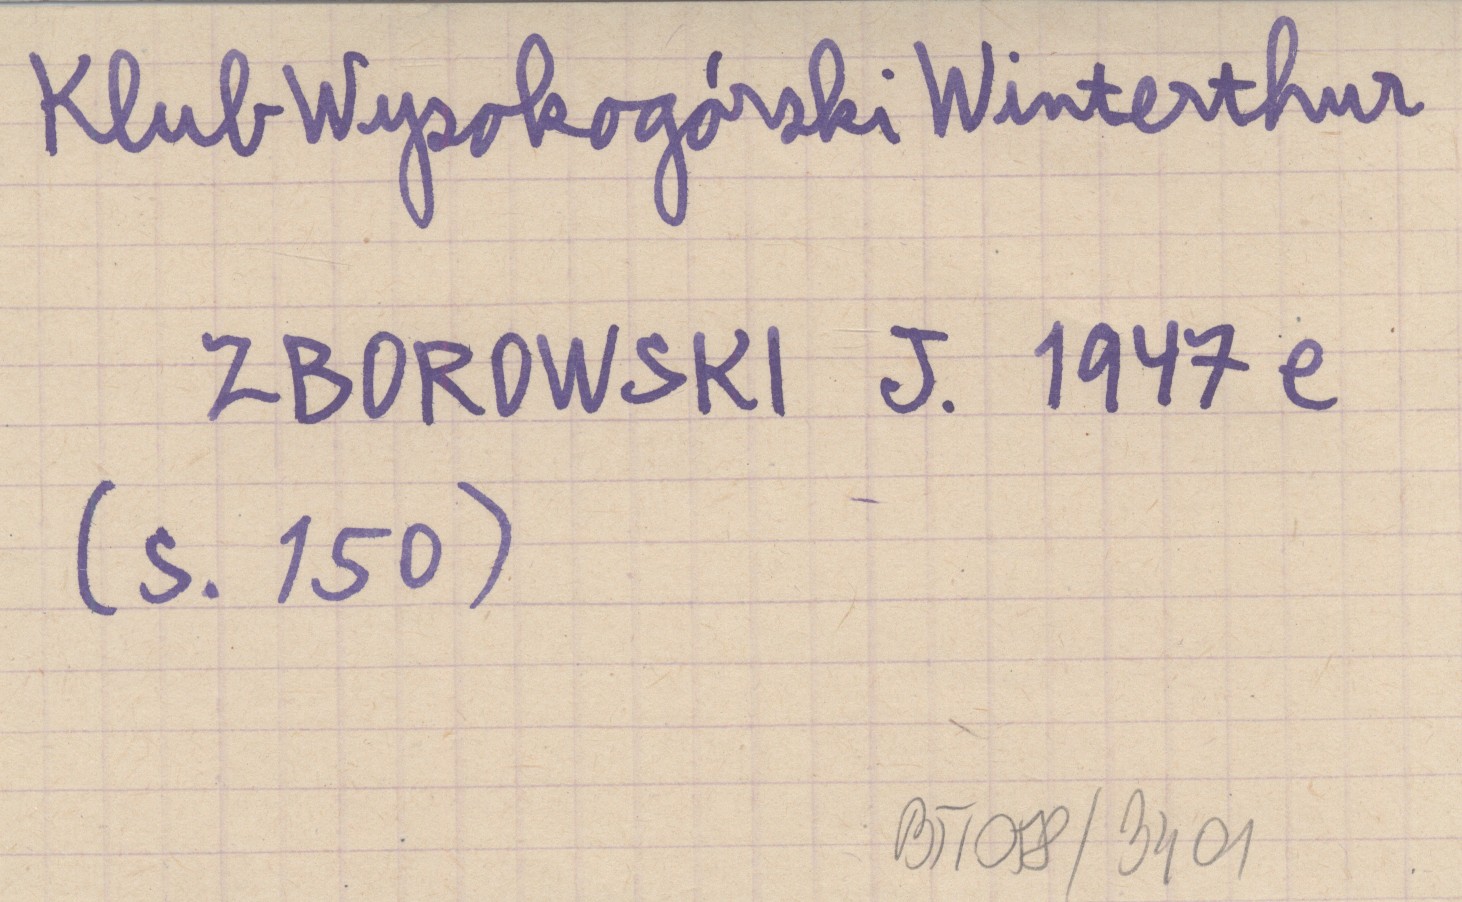 Klub Wysokogórski Winterthur
ZBOROWSKI J. 1947 e
(s. 150)
/3401